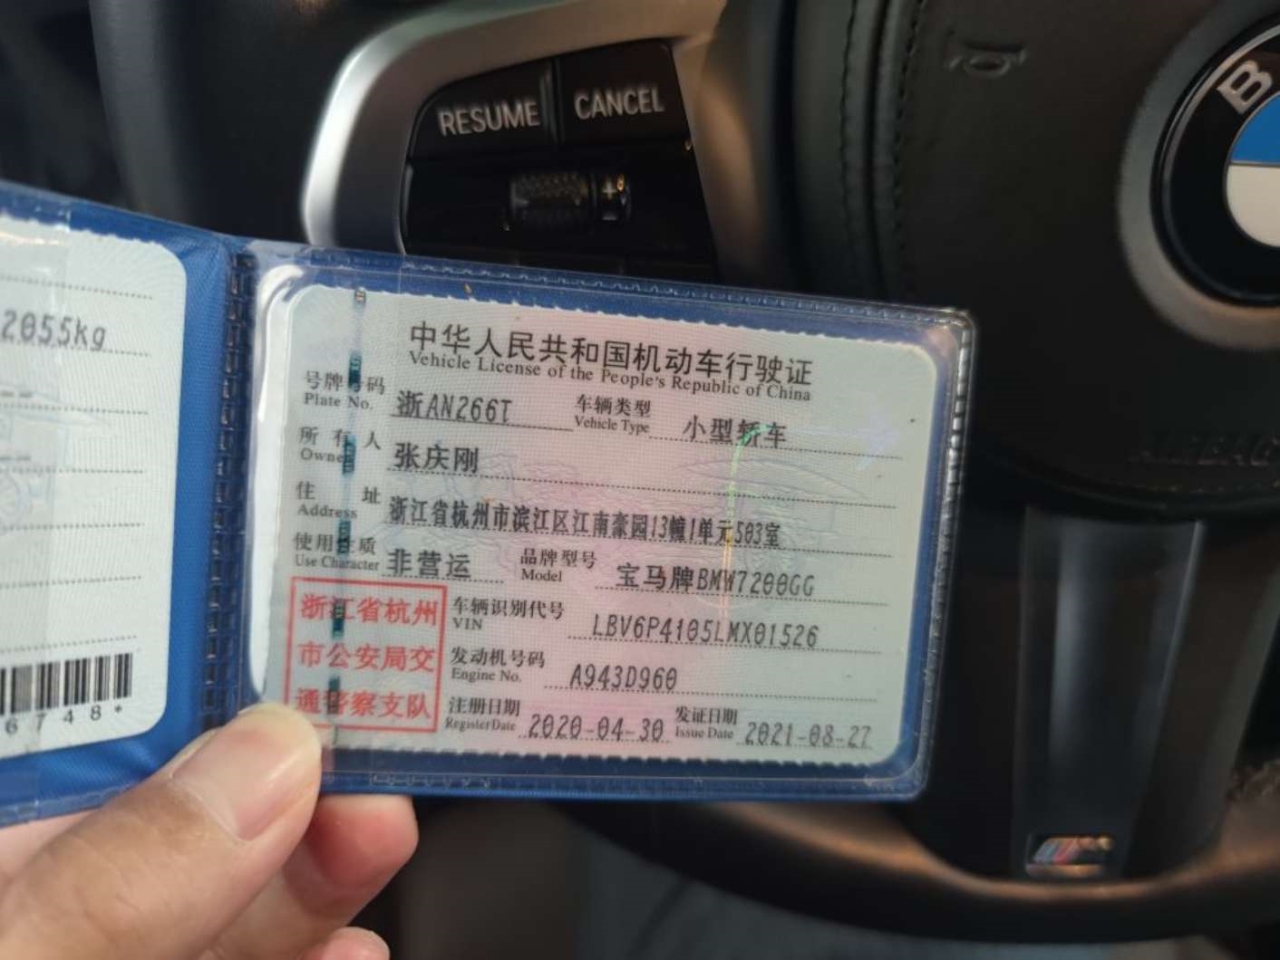 RESUME CANCEL
+
B
2055kg
6748*
中华人民共和国机动车行驶证
Vehicle License of the People's Republic of China
号牌号码 浙AN266T 车辆类型 小型轿车
Plate No. Vehicle Type
所有人 张庆刚
Owner
住址 浙江省杭州市滨江区江南豪园13幢1单元503室
Address
使用性质 非营运 品牌型号 宝马牌BMW7200GG
Use Character Model
浙江省杭州
市公安局交
通警察支队
车辆识别代号 LBV6P4105LMX01526
VIN
发动机号码 A943D960
Engine No.
注册日期 2020-04-30 发证日期 2021-08-27
Register Date Issue Date